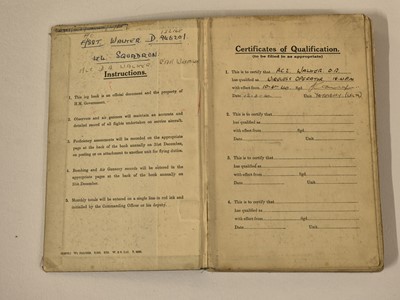 F/SGT WALKER D.
SQUADRON.
Instructions.
1.—This log book is an official document and the property of
H.M. Government.
2.—Observers and air gunners will maintain an accurate and
detailed record of all flights undertaken on service aircraft.
3.—Proficiency assessments will be recorded on the appropriate
page at the back of the book annually on 31st December,
on posting or on attachment to another unit for flying duties.
4.—Bombing and Air Gunnery records will be entered in the
appropriate pages at the back of the book annually on
31st December.
5.—Monthly totals will be entered on a single line in red ink and
initialed by the Commanding Officer or his deputy.
Certificates of Qualification.
(to be filled in as appropriate)
1. This is to certify that AC2 WALKER D.R
has qualified as WIRELESS OPERATOR
with effect from Sgd.
Date Unit
2. This is to certify that
has qualified as
with effect from Sgd.
Date Unit
3. This is to certify that
has qualified as
with effect from Sgd.
Date Unit
4. This is to certify that
has qualified as
with effect from Sgd.
Date Unit